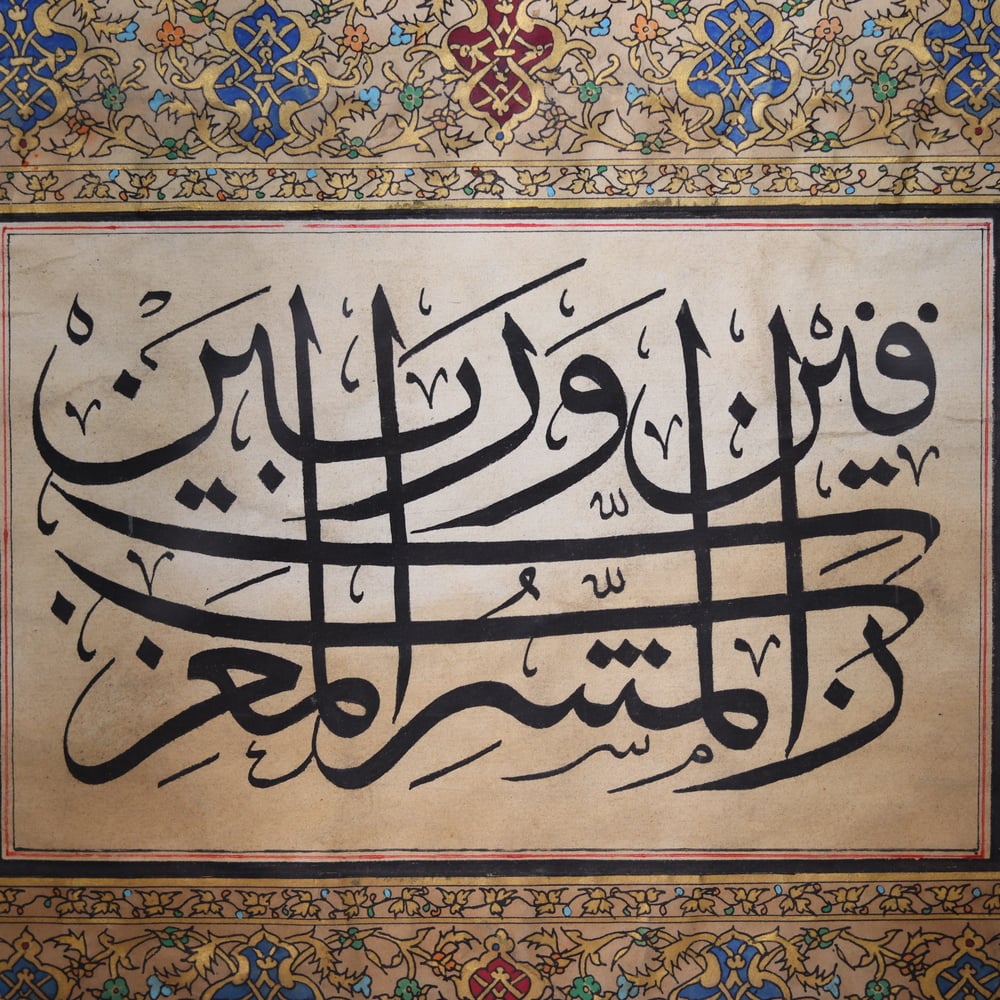 رب المشرقين ورب المغربين